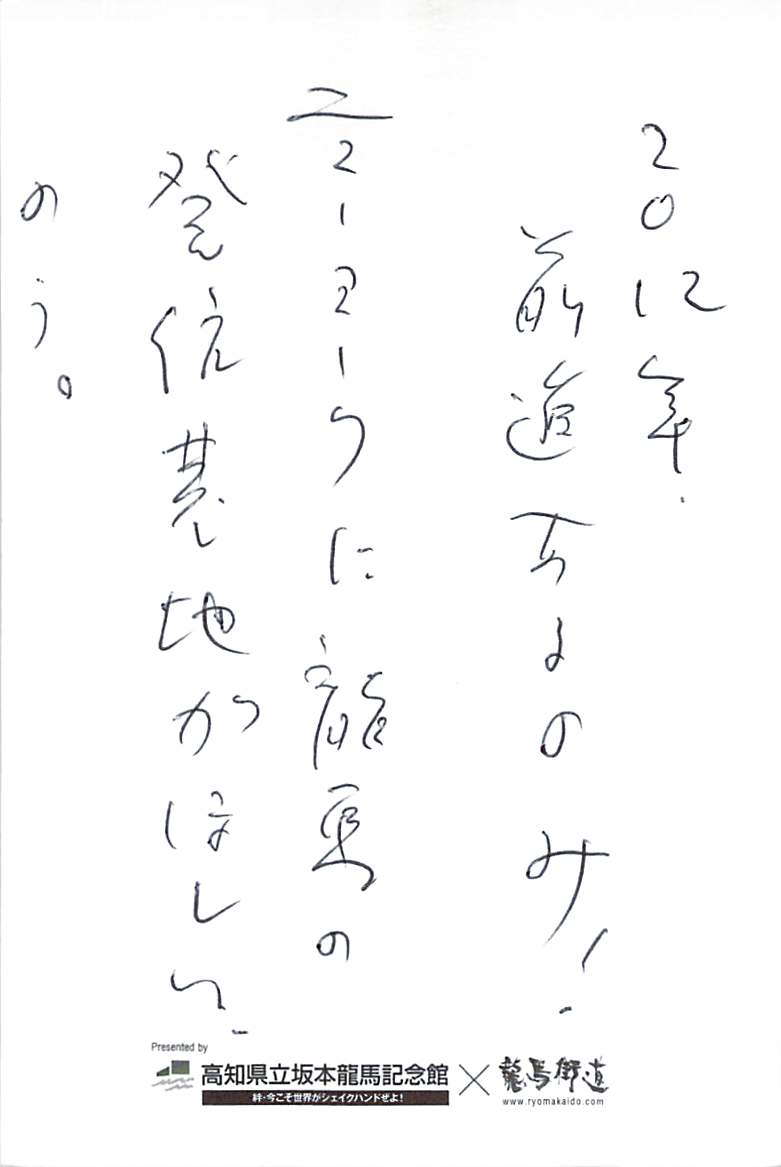 2012年.
前進するのみ!
ニューヨークに龍馬の
発信基地がほしい
のう。
Presented by
高知県立坂本龍馬記念館
絆・今こそ世界がシェイクハンドぜよ!
×
龍馬街道
www.ryomakaido.com